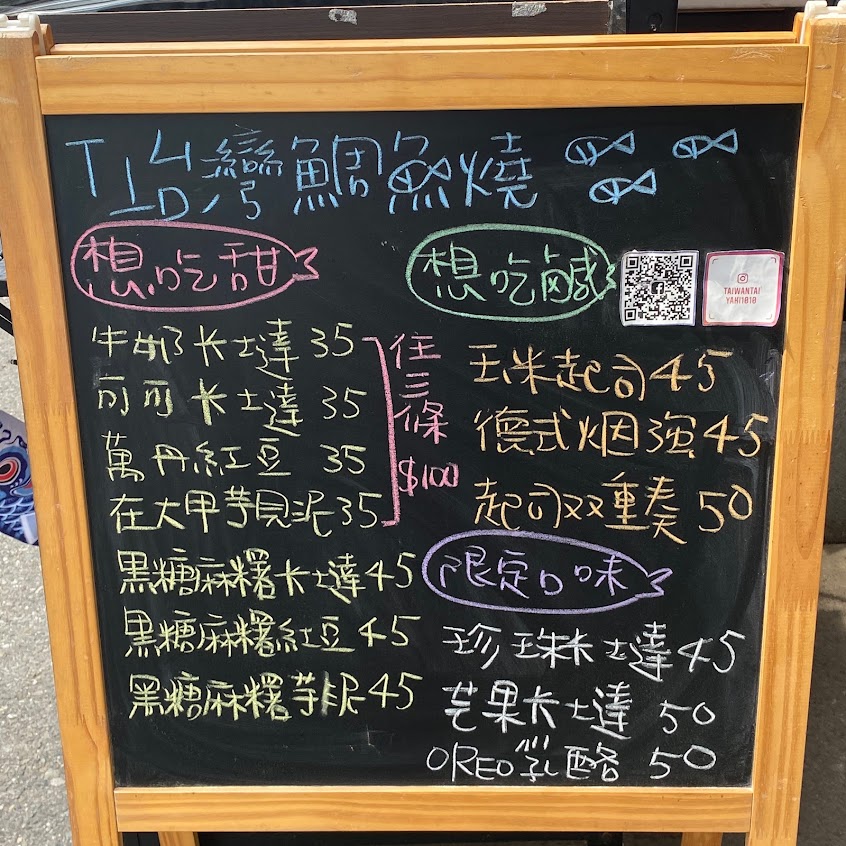 T台灣鯛魚燒
想吃甜
牛奶卡士達 35
可可卡士達 35
萬丹紅豆 35
在大甲芋見泥 35
任三條
$100
黑糖麻糬卡士達 45
黑糖麻糬紅豆 45
黑糖麻糬芋泥 45
想吃鹹
TAIWANTAI
YAKI1818
玉米起司 45
德式烟燻 45
起司双重奏 50
限定口味
珍珠卡士達 45
芒果卡士達 50
OREO乳酪 50